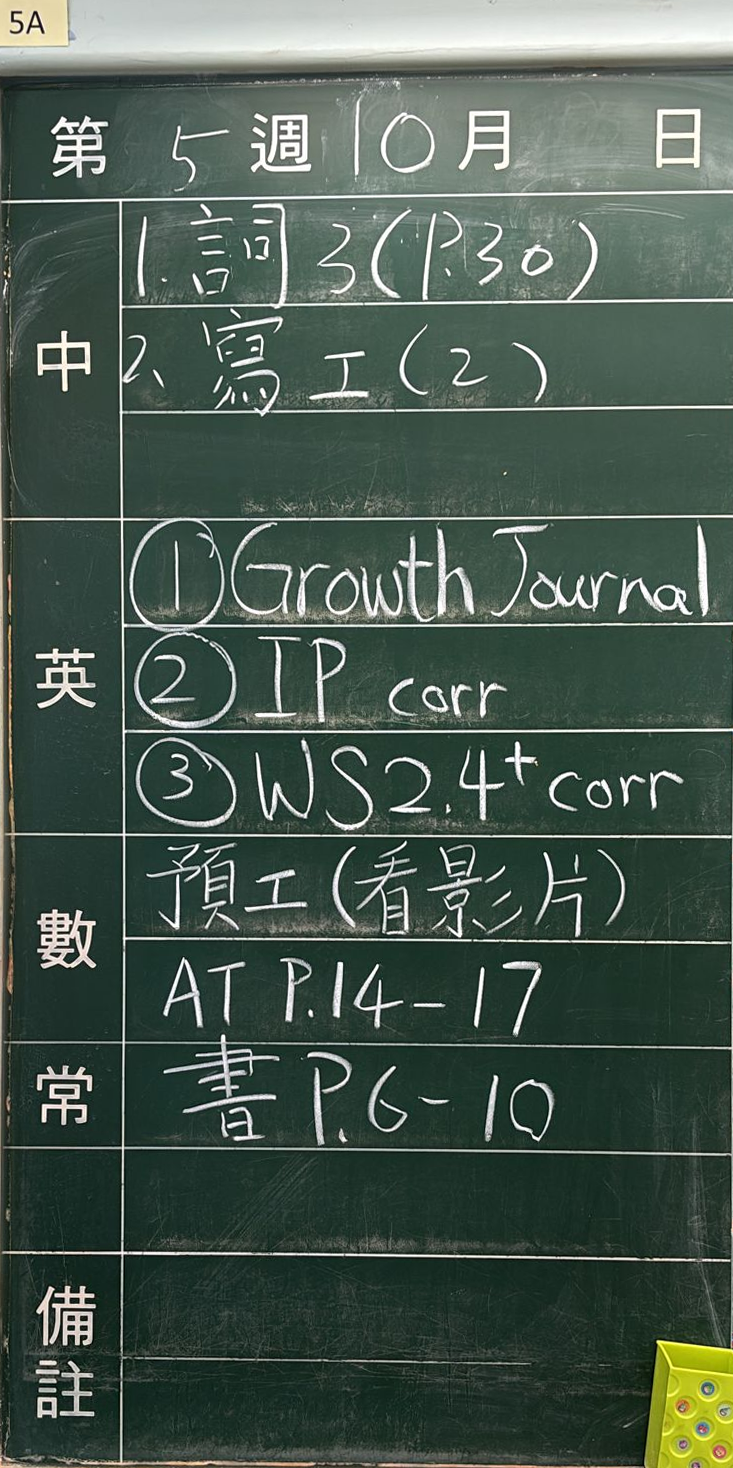 5A
第 5 週 10 月 日
中
1. 詞 3 (P.30)
2、寫工(2)
英
① Growth Journal
② IP corr
③ WS2.4+corr
數
預工(看影片)
AT P.14-17
常
書 P.6-10
備註